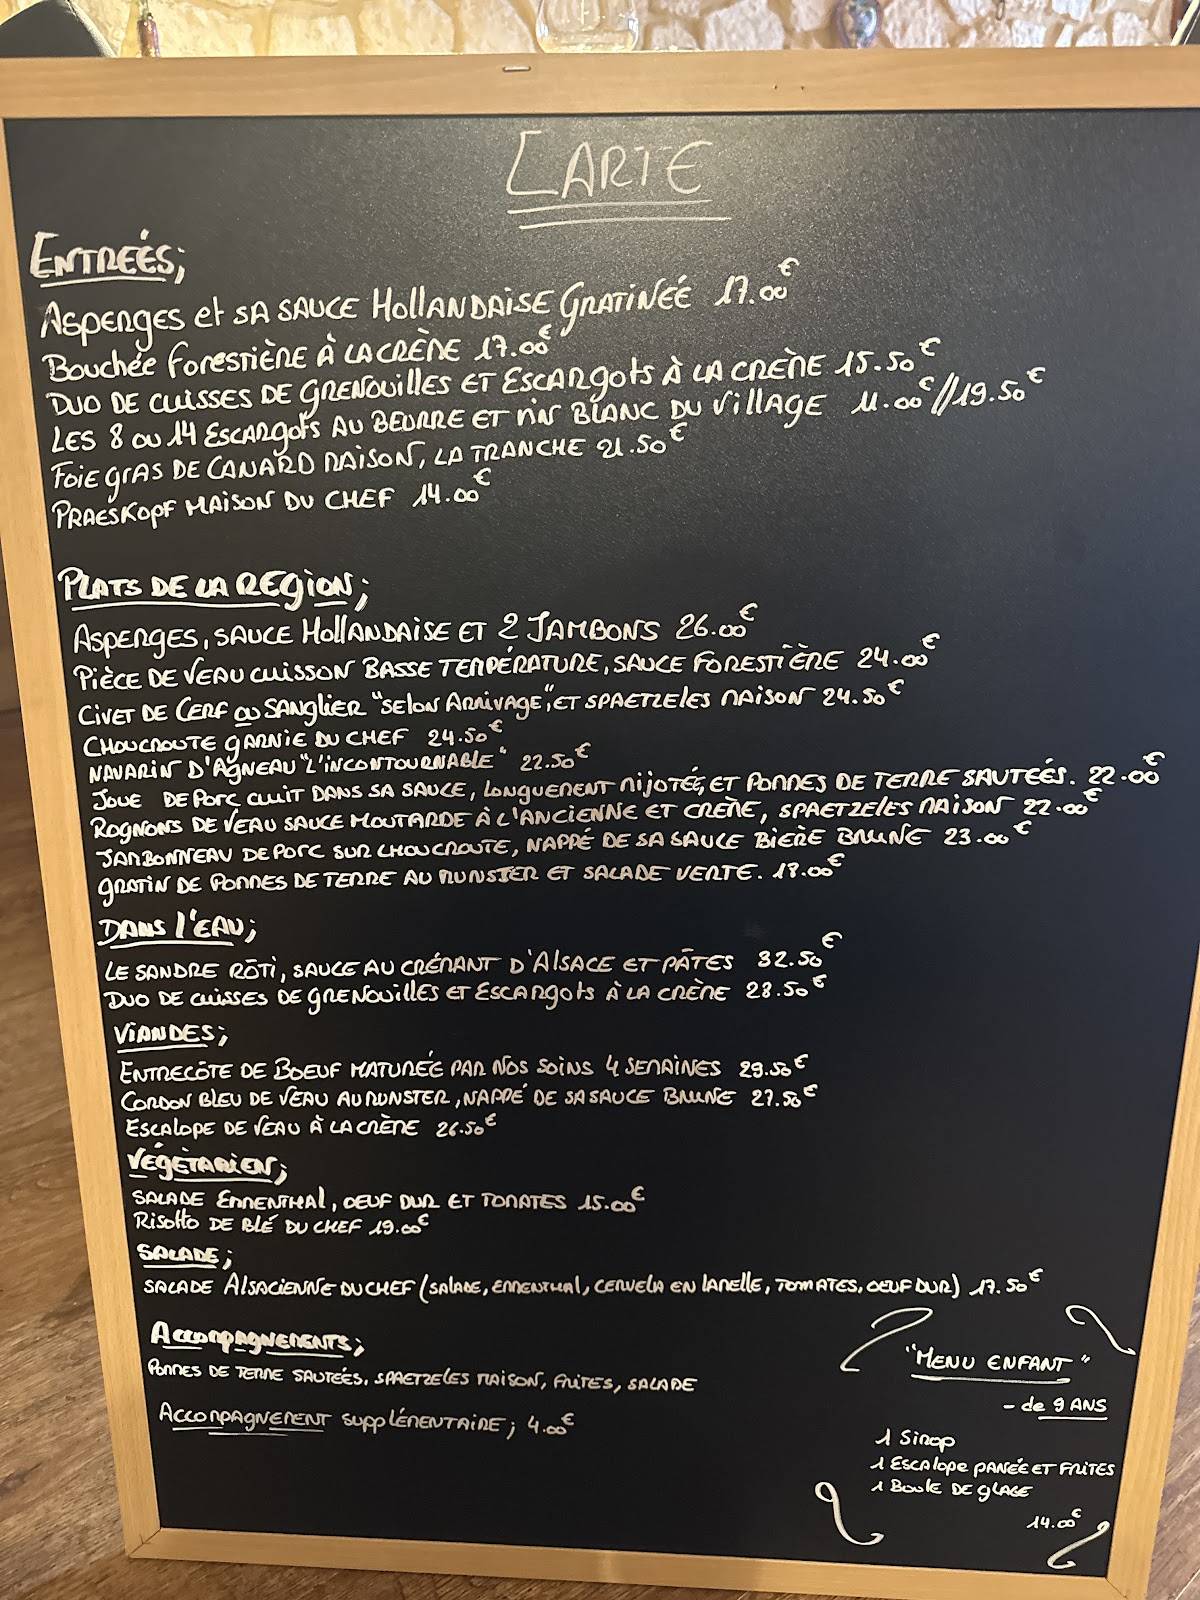 CARTE
ENTREÉS;
ASPERGES et SA SAUCE HOLLANDAISE GRATINÉÉ 17.00€
BOUCHÉE FORESTIÈRE À LA CRÈME 17.00€
DUO DE CUISSES DE GRENOUILLES ET ESCARGOTS À LA CRÈME 15.50€
LES 8 OU 14 ESCARGOTS AU BEURRE ET VIN BLANC DU VILLAGE 11.00€//19.50€
FOIE GRAS DE CANARD MAISON, LA TRANCHE 21.50€
PRAESKOPF MAISON DU CHEF 14.00€
PLATS DE LA REGION;
ASPERGES, SAUCE HOLLANDAISE ET 2 JAMBONS 26.00€
PIÈCE DE VEAU CUISSON BASSE TEMPÉRATURE, SAUCE FORESTIÈRE 24.00€
CIVET DE CERF OU SANGLIER "SELON ARRIVAGE", ET SPAETZELES MAISON 24.50€
CHOUCROUTE GARNIE DU CHEF 24.50€
NAVARIN D'AGNEAU "L'INCONTOURNABLE" 22.50€
JOUE DE PORC CUIT DANS SA SAUCE, LONGUEMENT MIJOTÉE, ET POMMES DE TERRE SAUTEÉS. 22.00€
ROGNONS DE VEAU SAUCE MOUTARDE À L'ANCIENNE ET CRÈME, SPAETZELES MAISON 22.00€
JAMBONNEAU DE PORC SUR CHOUCROUTE, NAPPÉ DE SA SAUCE BIÈRE BRUNE 23.00€
GRATIN DE POMMES DE TERRE AU MUNSTER ET SALADE VERTE. 18.00€
DANS L'EAU;
LE SANDRE RÔTI, SAUCE AU CRÉMANT D'ALSACE ET PÂTES 32.50€
DUO DE CUISSES DE GRENOUILLES ET ESCARGOTS À LA CRÈME 28.50€
VIANDES;
ENTRECÔTE DE BOEUF MATURÉE PAR NOS SOINS 4 SEMAINES 29.50€
CORDON BLEU DE VEAU AU MUNSTER, NAPPÉ DE SA SAUCE BRUNE 27.50€
ESCALOPE DE VEAU À LA CRÈME 26.50€
VÉGÉTARIEN;
SALADE EMMENTHAL, OEUF DUR ET TOMATES 15.00€
RISOTTO DE BLÉ DU CHEF 19.00€
SALADE;
SALADE ALSACIENNE DU CHEF (SALADE, EMMENTHAL, CERVELA EN LAMELLE, TOMATES, OEUF DUR) 17.50€
ACCOMPAGNEMENTS;
POMMES DE TERRE SAUTEÉS, SPAETZELES MAISON, FRITES, SALADE
ACCOMPAGNEMENT SUPPLÉMENTAIRE; 4.00€
"MENU ENFANT"
- de 9 ANS
1 SIROP
1 ESCALOPE PANÉE ET FRITES
1 BOULE DE GLACE
14.00€